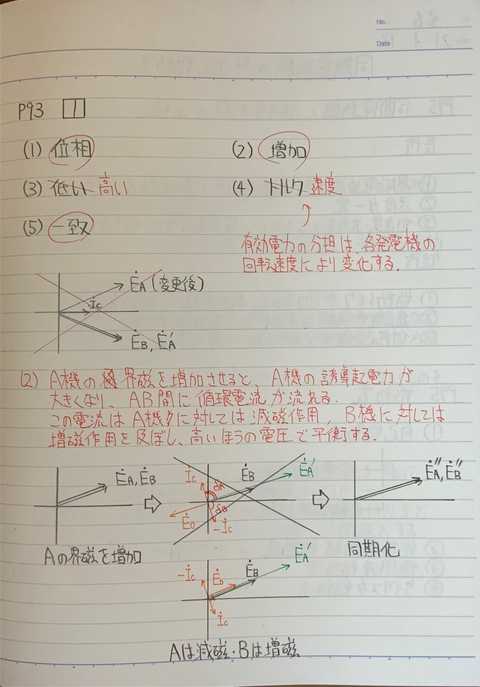 No.
Date
P93 1
(1) 位相 (2) 増加
(3) 低い 高い (4) トルク 速度
(5) 一致
有効電力の分担は、各発電機の
回転速度により変化する.
ĖA (変更後)
İc
ĖB, ĖA′
(2) A機の界磁を増加させると、A機の誘導起電力が
大きくなり、AB間に循環電流が流れる.
この電流はA機に対しては減磁作用, B機に対しては
増磁作用を及ぼし, 高いほうの電圧で平衡する.
ĖA, ĖB
İc
ĖB
ĖA′
ĖA″, ĖB″
δA
δB
Ė0
-İc
Aの界磁を増加
同期化
-İc
ĖB
ĖA′
İc
Aは減磁・Bは増磁